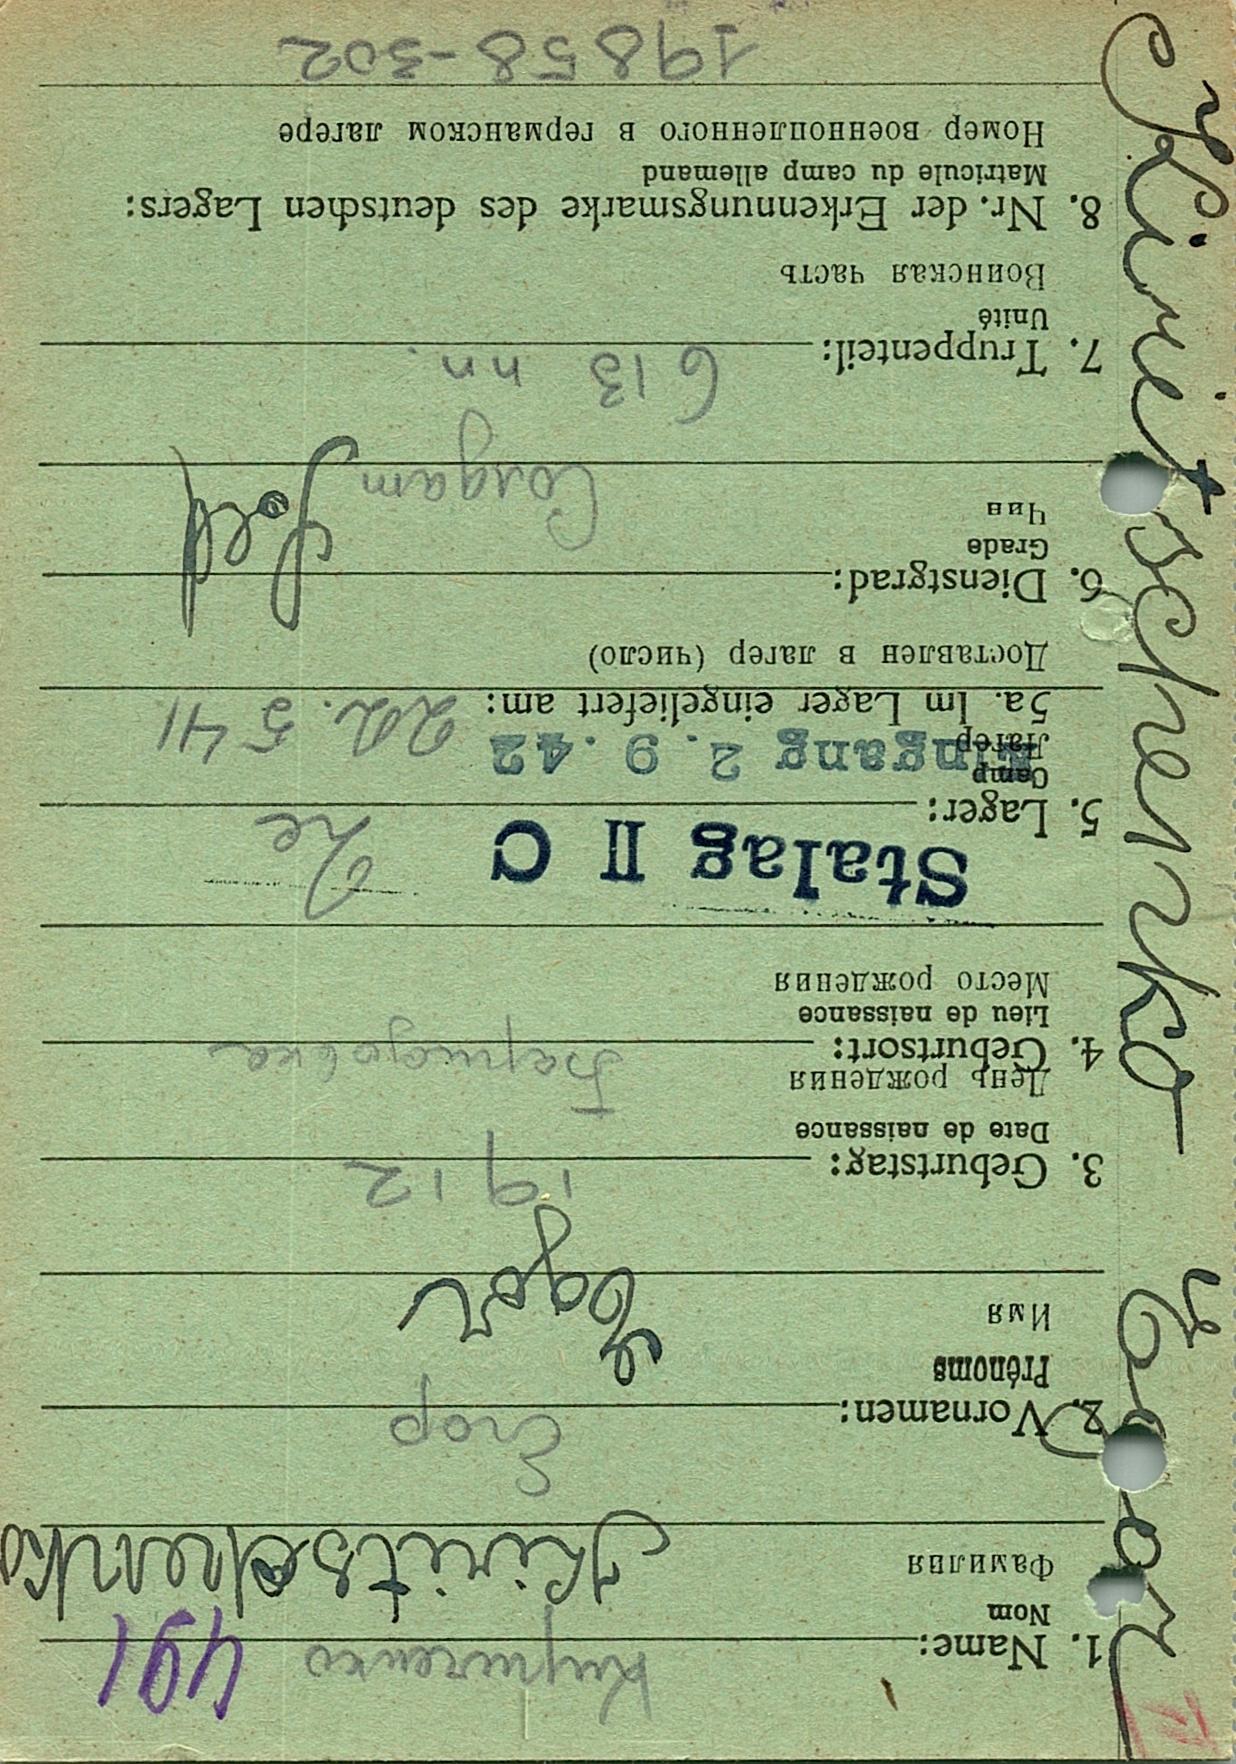 Kiritschenko Egor
491
1. Name: Кириченко
Nom
Фамилия
Kiritschenko
2. Vornamen: Егор
Prénoms
Имя
Egor
3. Geburtstag: 1912
Date de naissance
День рождения
4. Geburtsort:
Lieu de naissance
Место рождения
Stalag II C
5. Lager:
Camp
Лагерь
Eingang 2.9.42
5a. Im Lager eingeliefert am: 22.5 41
Доставлен в лагер (число)
6. Dienstgrad: Sold
Grade
Чин
Солдат
7. Truppenteil: 613 пп.
Unité
Воинская часть
8. Nr. der Erkennungsmarke des deutschen Lagers:
Matricule du camp allemand
Номер военнопленного в германском лагере
19858-302